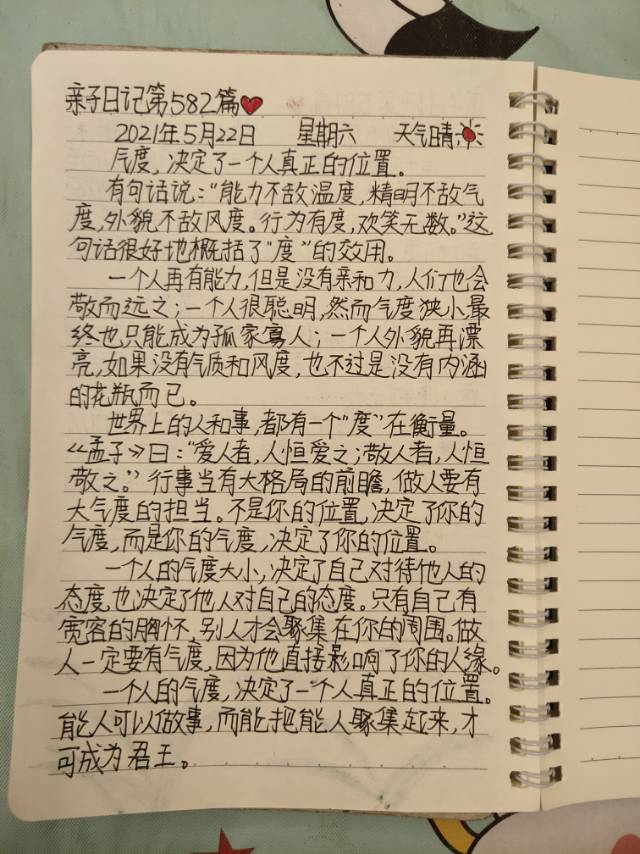 亲子日记第582篇
2021年5月22日 星期六 天气晴
气度，决定了一个人真正的位置。
有句话说：“能力不敌温度，精明不敌气
度，外貌不敌风度。行为有度，欢笑无数。”这
句话很好地概括了“度”的效用。
一个人再有能力，但是没有亲和力，人们也会
敬而远之；一个人很聪明，然而气度狭小最
终也只能成为孤家寡人；一个人外貌再漂
亮，如果没有气质和风度，也不过是没有内涵
的花瓶而已。
世界上的人和事，都有一个“度”在衡量。
《孟子》曰：“爱人者，人恒爱之；敬人者，人恒
敬之。”行事当有大格局的前瞻，做人要有
大气度的担当。不是你的位置，决定了你的
气度，而是你的气度，决定了你的位置。
一个人的气度大小，决定了自己对待他人的
态度，也决定了他人对自己的态度。只有自己有
宽容的胸怀，别人才会聚集在你的周围。做
人一定要有气度，因为他直接影响了你的人缘。
一个人的气度，决定了一个人真正的位置。
能人可以做事，而能把能人聚集起来，才
可成为君王。